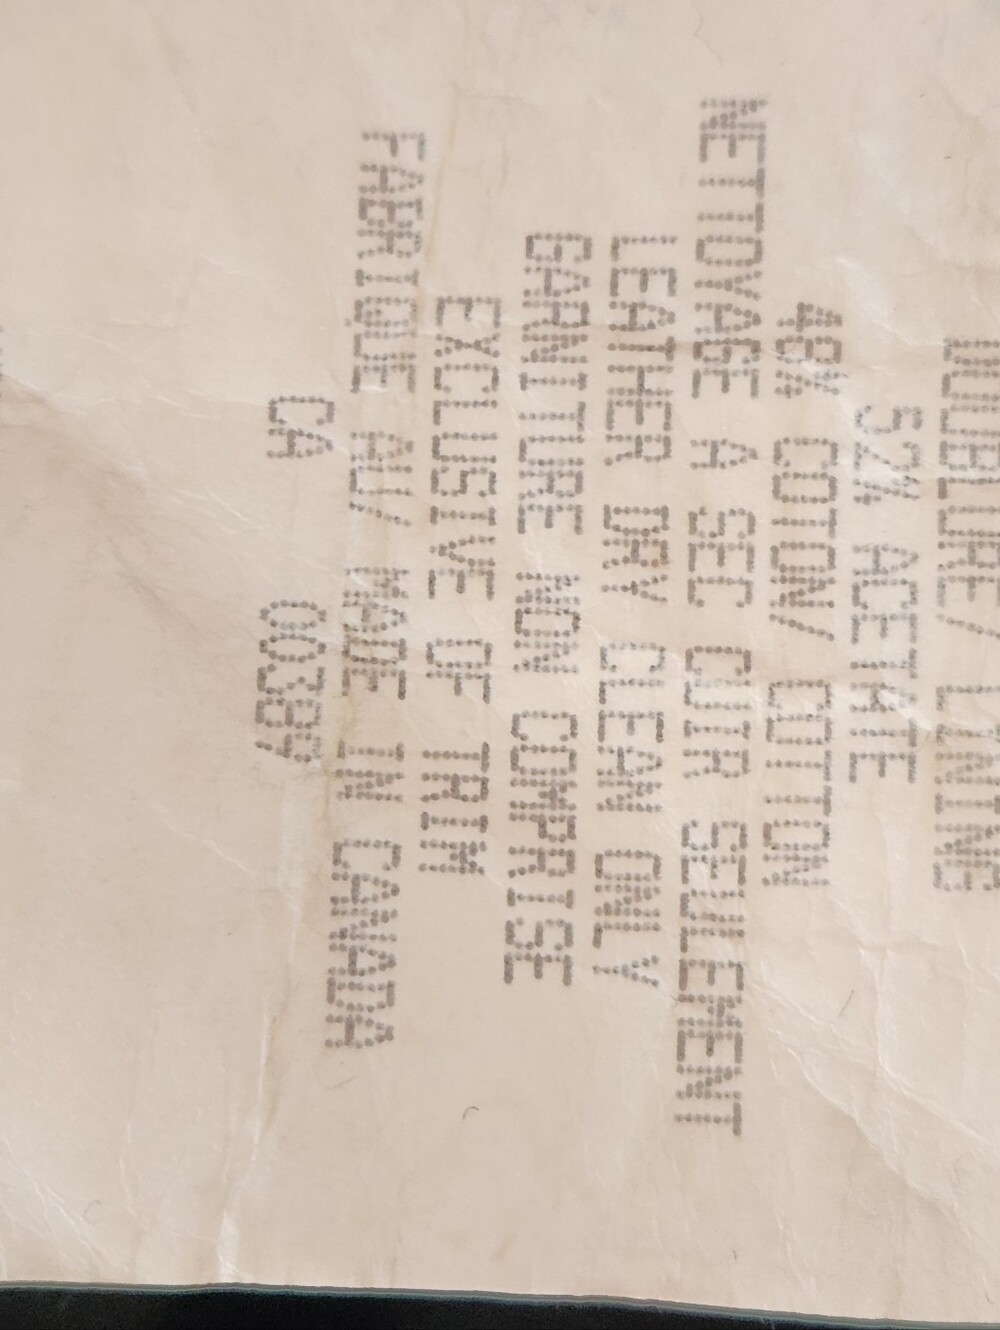 DOUBLURE/ LINING
52% ACETATE
48% COTON/ COTTON
NETTOYAGE A SEC CUIR SEULEMENT
LEATHER DRY CLEAN ONLY
GARNITURE NON COMPRISE
EXCLUSIVE OF TRIM
FABRIQUE AU/ MADE IN CANADA
CA 00387